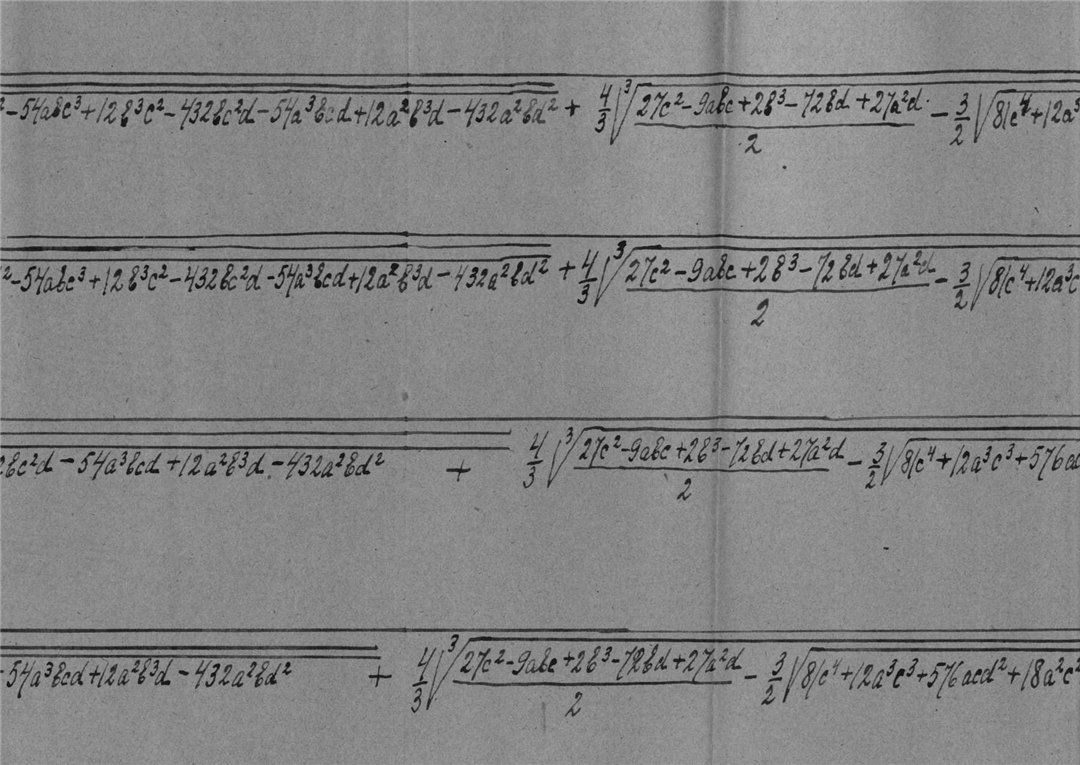 ² − 54abc³ + 12b³c² − 432bc²d − 54a³bcd + 12a²b³d − 432a²bd² + 4/3 ∛(27c² − 9abc + 2b³ − 72bd + 27a²d)/2 − 3/2 √81c⁴ + 12a³
² − 54abc³ + 12b³c² − 432bc²d − 54a³bcd + 12a²b³d − 432a²bd² + 4/3 ∛(27c² − 9abc + 2b³ − 72bd + 27a²d)/2 − 3/2 √81c⁴ + 12a³c
2bc²d − 54a³bcd + 12a²b³d − 432a²bd² + 4/3 ∛(27c² − 9abc + 2b³ − 72bd + 27a²d)/2 − 3/2 √81c⁴ + 12a³c³ + 576acd
54a³bcd + 12a²b³d − 432a²bd² + 4/3 ∛(27c² − 9abc + 2b³ − 72bd + 27a²d)/2 − 3/2 √81c⁴ + 12a³c³ + 576acd² + 18a²c²